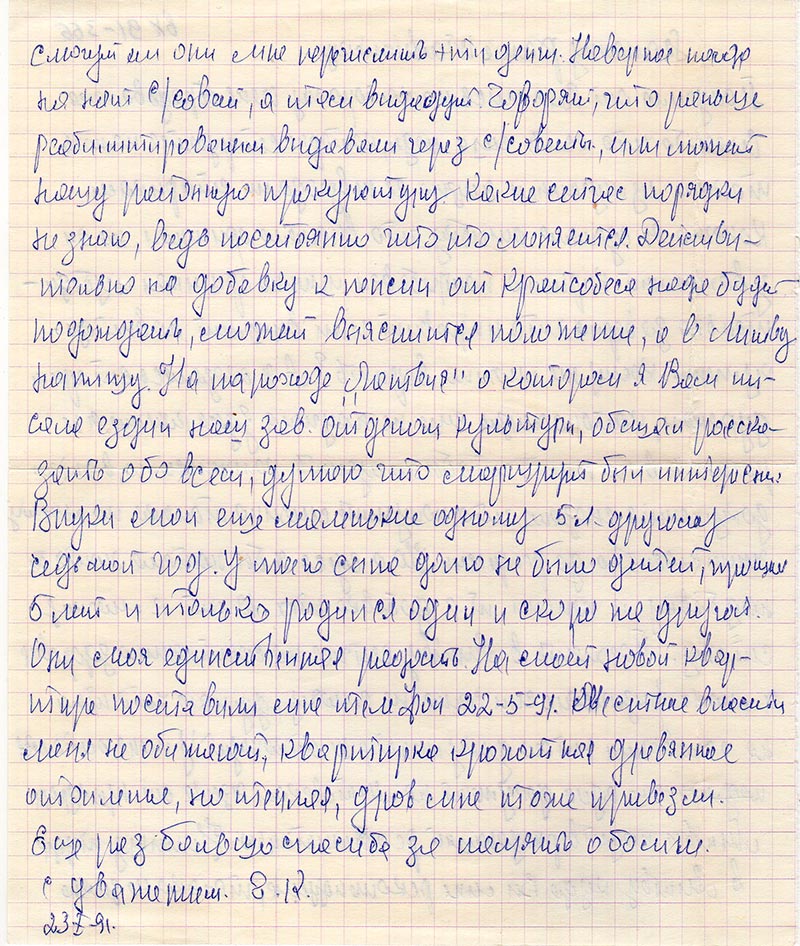 смогут ли они мне перечислить эти деньг. Наверное надо
на наш с/совет, а там выдадут. Говорят, что раньше
реабилитированым выдавали через с/советы, или может
нашу районную прокуратуру Какие сейчас порядки
не знаю, ведь постоянно что то меняется. Действи-
тельно на добавку к пенсии от Крайсобеса надо будет
подождать, может выяснится положение, а в Литву
напишу. На пароходе „Латвия" о котором я Вам пи-
сала ездил наш зав. отделом культуры, обещал расска-
зать обо всем, думаю что маршрут был интересн.
Внуки мои еще маленькие одному 5 л. другому
седьмой год. У моего сына долго не было детей, прошло
6 лет и только родился один и скоро же другой.
Они моя единственная радость. На моей новой квар-
тире поставили мне телефон 22-5-91. Местные власти
меня не обижают, квартирка крохотная древянное
отопленье, но теплая, дров мне тоже привезли.
Еще раз большо спасибо за память обо мне.
С уважением. Е.К.
23 X-91.